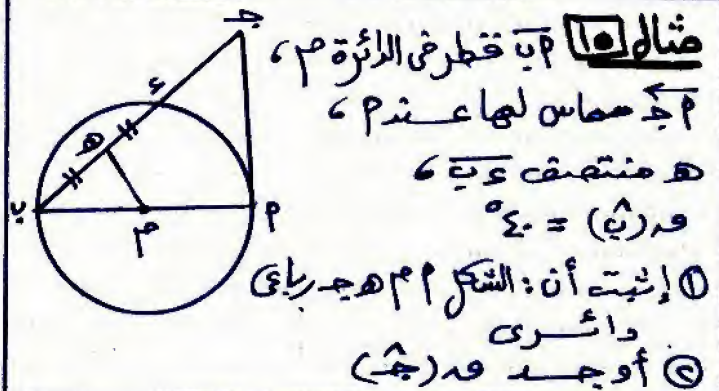 مثال ١٥ أب قطر فى الدائرة م ،
أجـ مماس لها عـند أ ،
هـ منتصف دب ،
ق(بَ) = ٤٠°
① إثبت أن : الشكل أ م هـ جـ رباعى
دائـرى
② أوجـد ق(جـَ)
جـ
د
هـ
ب
م
أ